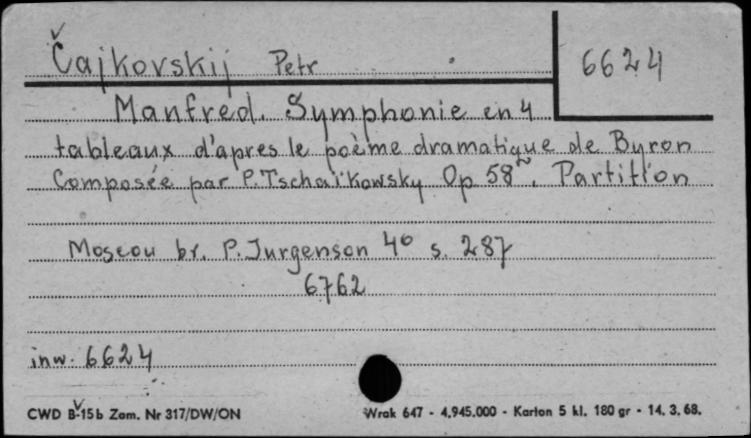 Čajkovskij Petr
6624
Manfred. Symphonie en 4
tableaux d'apres le poème dramatique de Byron
Composée par P. Tschaïkowsky Op 58. Partition
Moscou br. P. Jurgenson 4° s. 287
6762
inw. 6624
CWD B-15b Zam. Nr 317/DW/ON
Wrak 647 - 4.945.000 - Karton 5 kl. 180 gr - 14. 3. 68.